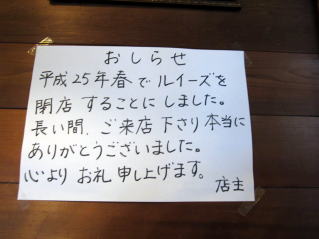 おしらせ
平成25年春でルイーズを
閉店することにしました。
長い間、ご来店下さり本当に
ありがとうございました。
心よりお礼申し上げます。
店主